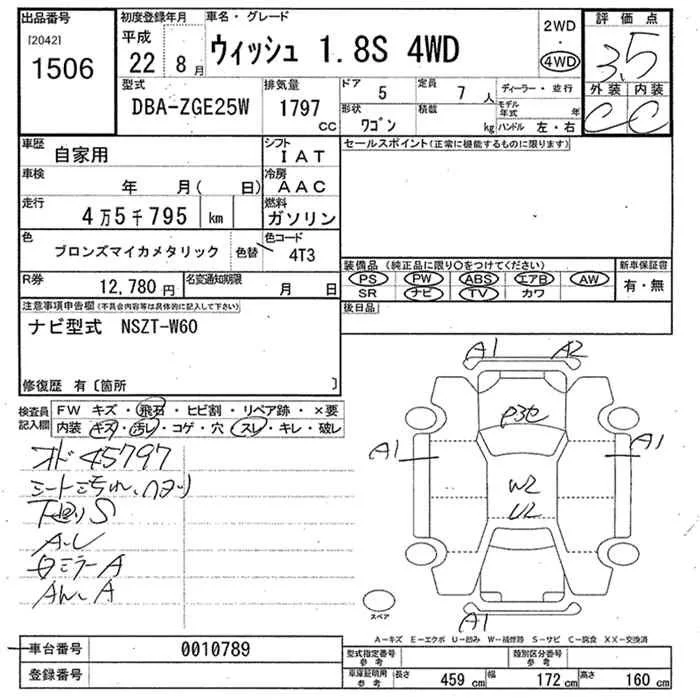 出品番号
[2042]
1506
初度登録年月
平成
22 8月
車名・グレード
ウィッシュ 1.8S 4WD
2WD
4WD
評価点
3.5
外装 内装
C C
型式
DBA-ZGE25W
排気量
1797
cc
ドア
5
定員
7 人
形状
ワゴン
積載
kg
ディーラー・並行
モデル年式 年
ハンドル 左・右
車歴
自家用
シフト
IAT
車検
年 月( 日)
冷房
AAC
走行
4万5千795 km
燃料
ガソリン
色
ブロンズマイカメタリック
色替
色コード
4T3
R券
12,780円
名変通知期限
月 日
セールスポイント(正常に機能するものに限ります)
装備品(純正品に限り○をつけてください)
PS PW ABS エアB AW
SR ナビ TV カワ
新車保証書
有・無
後日品
注意事項申告欄(不具合内容等は具体的に記入して下さい)
ナビ型式 NSZT-W60
修復歴 有〔箇所 〕
検査員記入欄
FW キズ・飛石・ヒビ割・リペア跡・×要
内装 キズ・汚レ・コゲ・穴・スレ・キレ・破レ
オド 45797
下廻りS
A.U
ミラーA
A
A1 A2
A1 A1
W2
U2
A1
スペア
A-キズ E-エクボ U-凹み W-補修跡 S-サビ C-腐食 XX-交換済
車台番号
0010789
登録番号
型式指定番号
参考
類別区分番号
参考
車庫証明用
参考
長さ 459 cm 幅 172 cm 高さ 160 cm